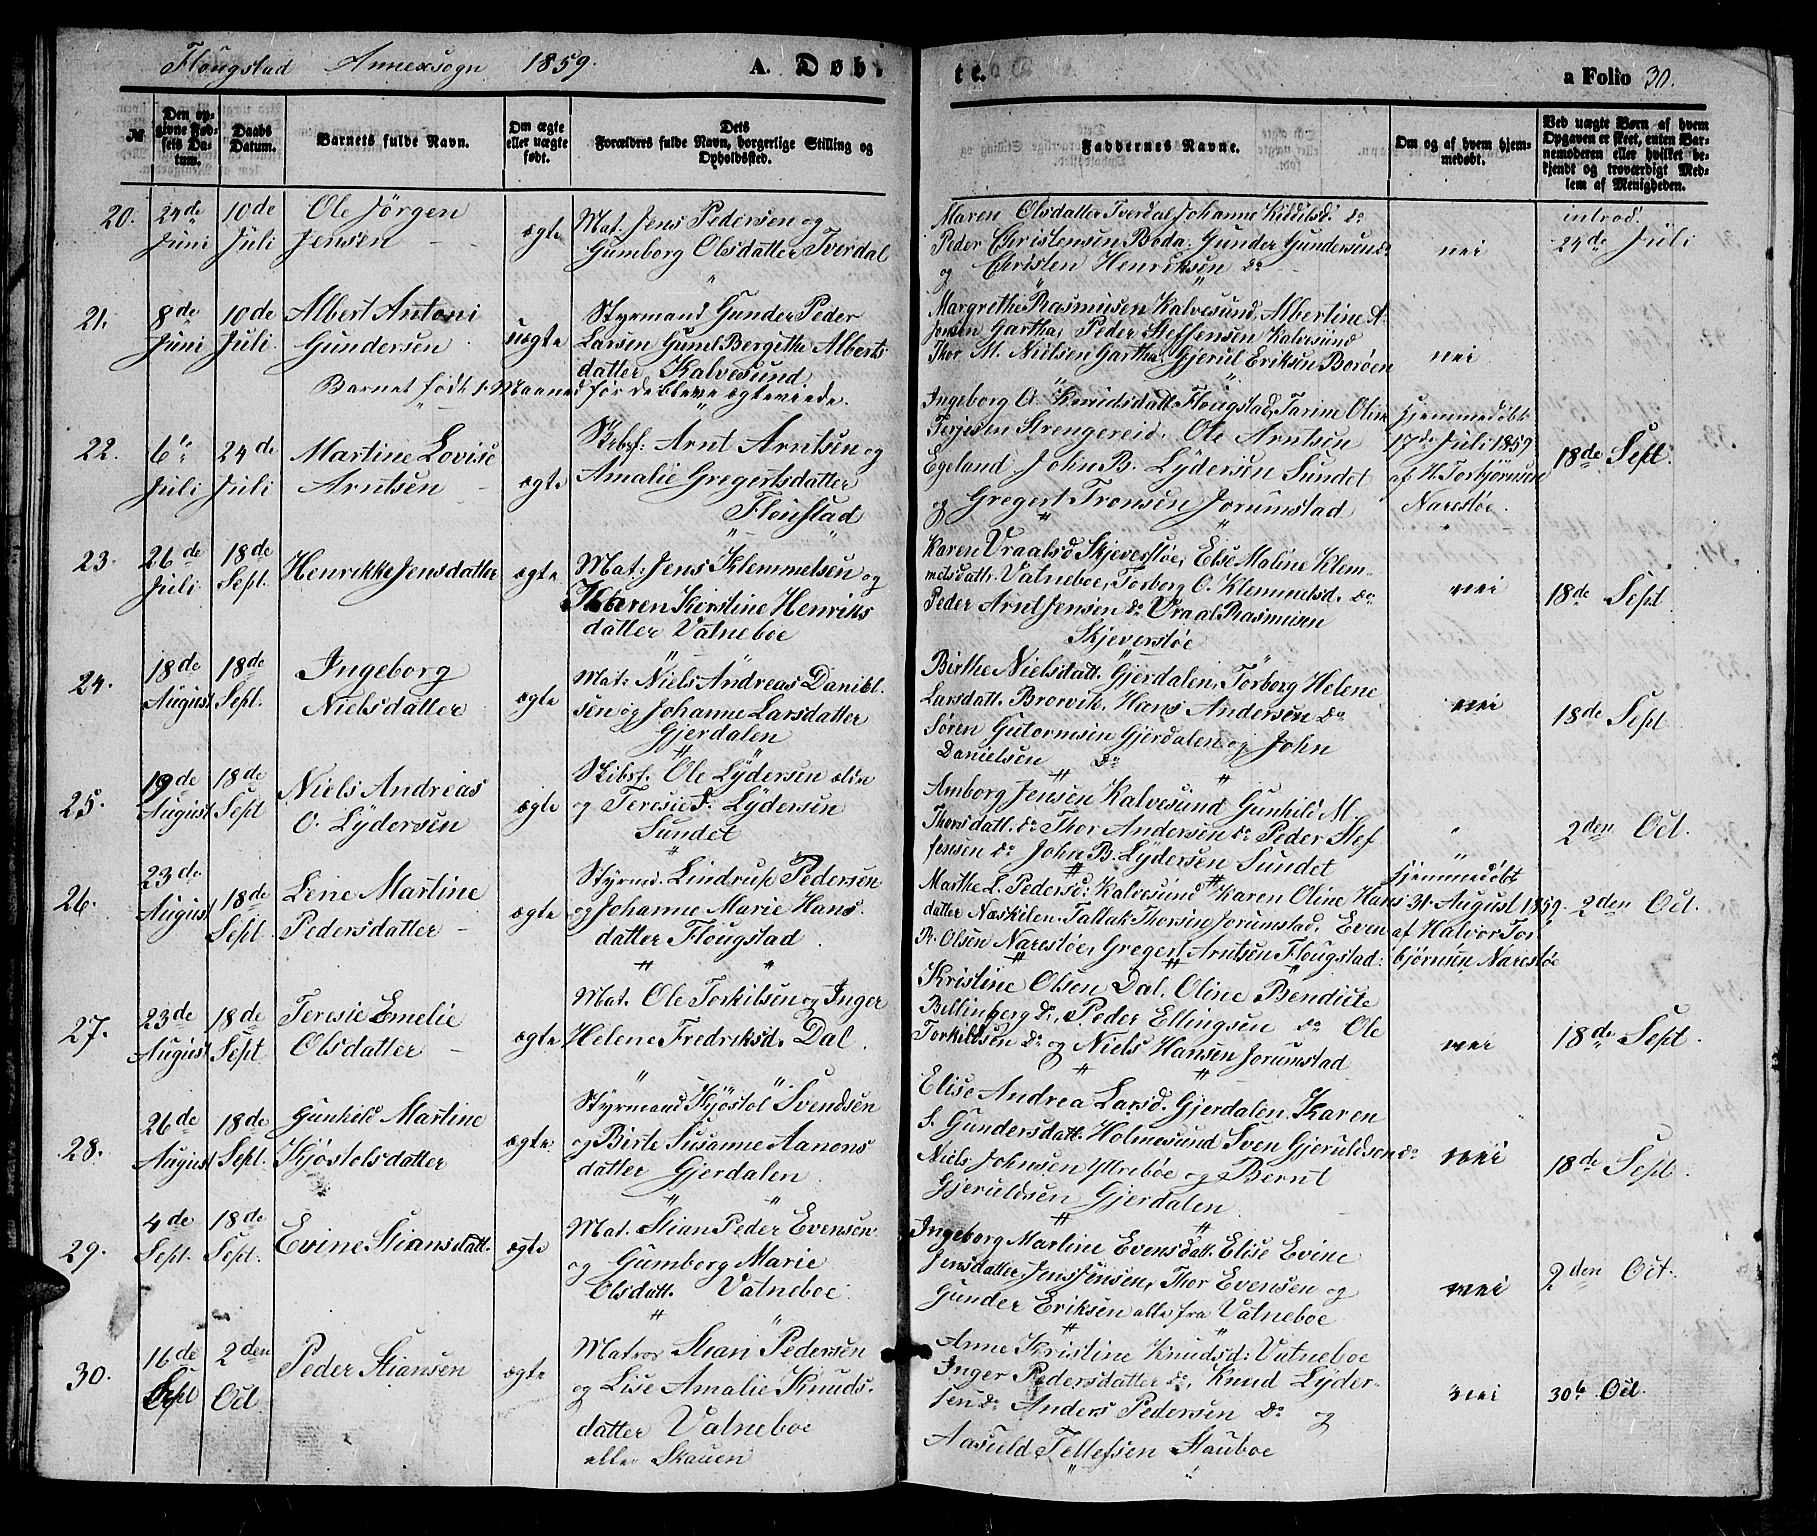 Flougstad Annexsogn 1859. A. Døb-
te. a Folio 30.
№
Den op-
givne Fød-
sels Da-
tum.
Daabs
Datum.
Barnets fulde Navn.
Om ægte
eller uægte
født.
Dets
Forældres fulde Navn, borgerlige Stilling og
Opholdssted.
Faddernes Navne.
Om og af hvem hjem-
medøbt.
Ved uægte Børn af hvem
Opgaven er skeet, enten Bar-
nemoderen eller hvilket be-
kjendt og troværdigt Med-
lem af Menigheden.
20. 24de Juni
10de Juli
Ole Jörgen
Jensen
ægte
Mat. Jens Pedersen og
Gumborg Olsdatter Tverdal
Maren Olsdatter Tverdal Johanne Kittilsd. do
Peder Christensen Boda. Gunder Gundersen do
og Christen Henriksen do
nei
introd.
24de Juli
21. 8de Juni
10de Juli
Albert Antoni
Gundersen
uægte
Styrmand Gunder Peder
Larsen Gunil Bergithe Alberts
datter Kalvesund
Barnet født 1 Maaned før de bleve ægteviede.
Margrethe Rasmusen Kalvesund, Albertine A.
Jensen Gartha, Peder Steffensen Kalvesund
Thor M. Nielsen Gartha, Gjerul Eriksen Borøen
nei
22. 6te Juli
24de Juli
Martine Lovise
Arntsen
ægte
Skibsf. Arnt Arntsen og
Amalie Gregertsdatter
Floustad
Ingeborg A. Knudsdatt. Flougstad, Tarine Oline
Terjesen Strengereid. Ole Arntsen
Egeland John B. Lydersen Sundet
og Gregert Tronsen Jorumstad
Hjemmedøbt
17de Juli 1859
af H. Torbjörnsen
Narestöe.
18de Sept.
23. 26de Juli
18de Sept.
Henrikke Jensdatter
ægte
Mat. Jens Klemmetsen og
Karen Kirstine Henriks
datter Vatneboe
Karen Vraalsd Skjeverstöe, Else Maline Klem-
metsdatt. Vatneboe, Torborg O. Klemmetsd. do
Peder Arnt Jensen do Vraal Rasmusen
Skjeverstöe
nei
18de Sept
24. 18de August
18de Sept.
Ingeborg
Nielsdatter
ægte
Mat. Niels Andreas Daniel-
sen og Johanne Larsdatter
Gjerdalen
Birthe Nielsdatt. Gjerdalen, Torborg Helene
Larsdatt. Brorvik, Hans Andersen do
Sören Gutormsen Gjerdalen og John
Danielsen do
nei
18de Sept
25. 19de August
18de Sept
Niels Andreas
O. Lydersen
ægte
Skibsf. Ole Lydersen ældre
og Teresie F. Lydersen
Sundet
Amborg Jensen Kalvesund Gunhild M.
Thorsdatt. do Thor Andersen do Peder Stef
fensen do John B. Lydersen Sundet
2den Oct.
26. 23de August
18de Sept
Lene Martine
Pedersdatter
ægte
Styrm. Lindrup Pedersen
og Johanne Marie Hans-
datter Flougstad
Marthe L. Pedersd: Kalvesund Karen Oline Hans
datter Næskilen. Tallak Thorsen Jorumstad, Even
R. Olsen Narestöe, Gregert Arntsen Flougstad:
Hjemmedøbt
31 August 1859.
af Halvor Tor
björnsen Narestöe
2den Oct.
27. 23de August
18de Sept
Teresie Emelie
Olsdatter
ægte
Mat. Ole Torkilsen og Inger
Helene Fredriksd. Dal
Kristine Olsen Dal. Oline Bendicte
Bellinberg do, Peder Ellingsen do Ole
Torkildsen do og Niels Hansen Jorumstad
nei
18de Sept.
28. 26de August
18de Sept.
Gunhild Martine
Kjöstolsdatter
ægte
Styrmand Kjöstol Svendsen
og Birte Susanne Aanons
datter Gjerdalen
Elise Andrea Larsd. Gjerdalen. Karen
S. Gundersdatt. Holmesund Sven Gjeruldsen do
Niels Johnsen Yttreböe og Bernt
Gjeruldsen Gjerdalen
nei
18de Sept.
29. 4de Sept.
18de Sept.
Evine Stiansdatt.
ægte
Mat. Stian Peder Evensen
og Gumborg Marie
Olsdatt. Vatneboe
Ingeborg Martine Evensdatt. Elise Evine
Jensdatter, Jens Jensen, Thor Evensen og
Gunder Eriksen alle fra Vatneboe
nei
2den Oct.
30. 16de Sept
2den Oct
Peder Stiansen
ægte
Matros Stian Pedersen
og Lise Amalie Knuds-
datter Vatneboe
eller Skauen
Anne Kristine Knudsd: Vatneboe
Inger Pedersdatter do, Knud Lyder-
sen do Anders Pedersen do og
Aasuld Tellefsen Stauboe
nei
30te Oct.